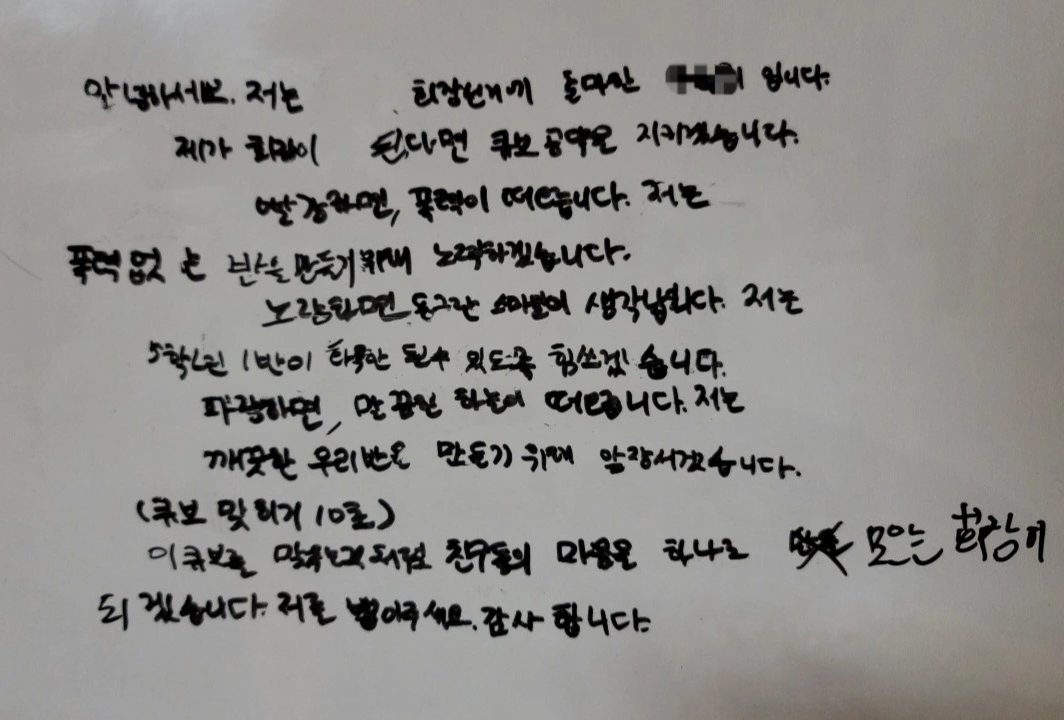 안녕하세요. 저는 회장선거에 출마한 입니다.
제가 회장이 된다면 큐브 공약을 지키겠습니다.
빨강하면, 폭력이 떠오릅니다. 저는
폭력 없는 반을 만들기 위해 노력하겠습니다.
노랑하면 동그란 스마일이 생각납니다. 저는
5학년 1반이 화목한 될수 있도록 힘쓰겠습니다.
파랑하면, 하늘이 떠오릅니다. 저는
깨끗한 우리반을 만들기 위해 앞장서겠습니다.
(큐브 맞히기 10초)
이 큐브를 친구들의 마음을 하나로 모으는 회장이
되겠습니다. 저를 뽑아주세요. 감사합니다.